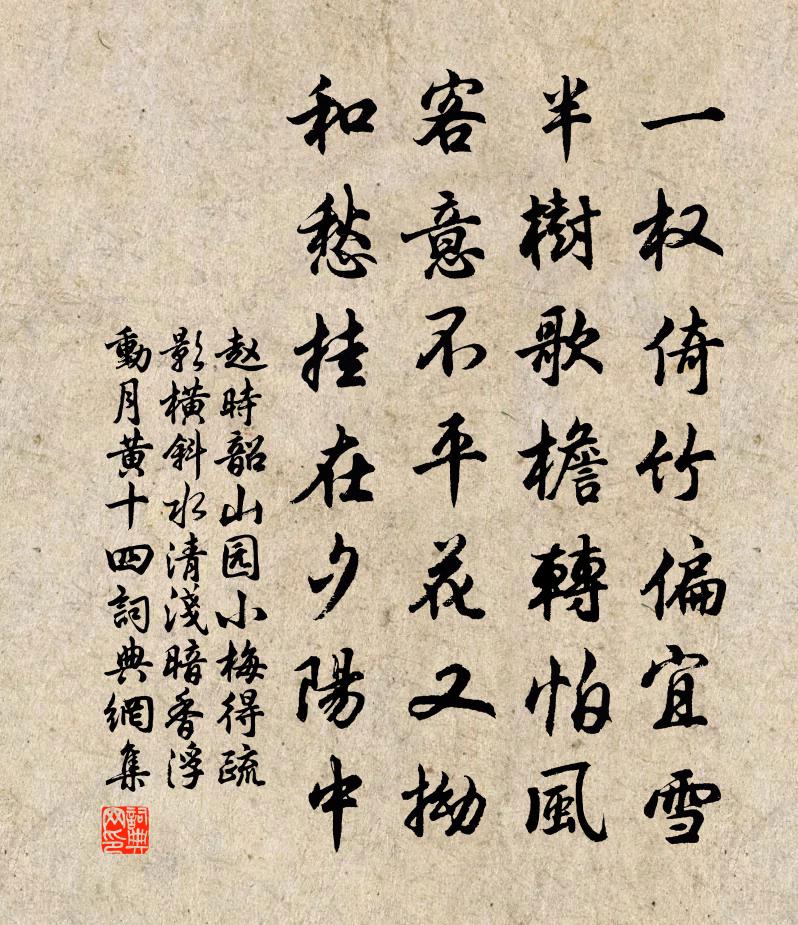 一权倚竹偏宜雪
半樹歌檐轉怕風
客意不平花又拗
和愁挂在夕陽中
赵時韶山园小梅得疏
影橫斜水清淺暗香浮
動月黄十四詞典網集
詞典网印